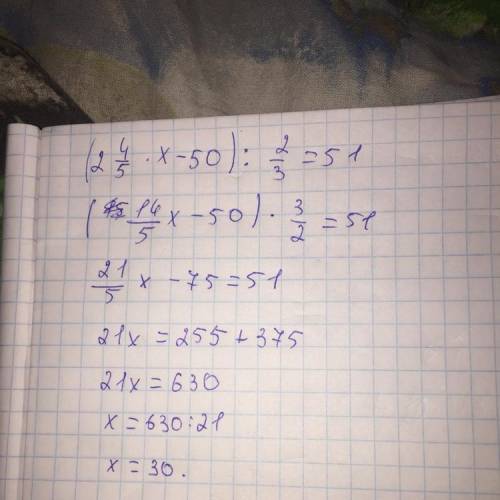 (2 4/5 · x - 50) : 2/3 = 51
(14/5 x - 50) · 3/2 = 51
21/5 x - 75 = 51
21x = 255 + 375
21x = 630
x = 630 : 21
x = 30.